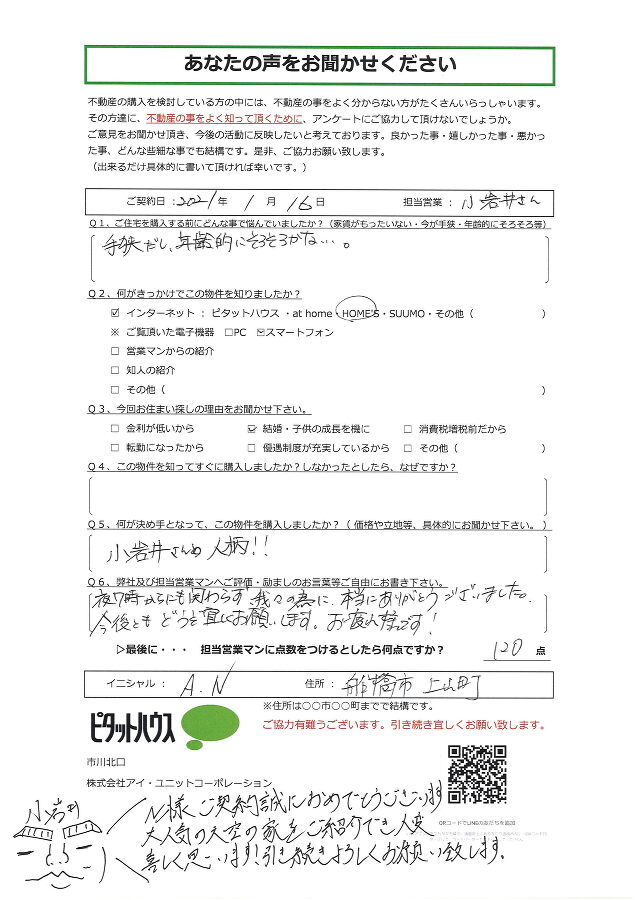 あなたの声をお聞かせください
不動産の購入を検討している方の中には、不動産の事をよく分からない方がたくさんいらっしゃいます。
その方達に、不動産の事をよく知って頂くために、アンケートにご協力して頂けないでしょうか。
ご意見をお聞かせ頂き、今後の活動に反映したいと考えております。良かった事・嬉しかった事・悪かっ
た事、どんな些細な事でも結構です。是非、ご協力お願い致します。
(出来るだけ具体的に書いて頂ければ幸いです。)
ご契約日:2021年 1月 16日 担当営業: 小岩井さん
Q1、ご住宅を購入する前にどんな事で悩んでいましたか?(家賃がもったいない・今が手狭・年齢的にそろそろ等)
手狭だし、年齢的にそろそろかな…。
Q2、何がきっかけでこの物件を知りましたか?
☑ インターネット: ピタットハウス ・at home・HOME'S・SUUMO・その他( )
※ ご覧頂いた電子機器 □PC ☑スマートフォン
□ 営業マンからの紹介
□ 知人の紹介
□ その他( )
Q3、今回お住まい探しの理由をお聞かせ下さい。
□ 金利が低いから ☑ 結婚・子供の成長を機に □ 消費税増税前だから
□ 転勤になったから □ 優遇制度が充実しているから □ その他( )
Q4、この物件を知ってすぐに購入しましたか?しなかったとしたら、なぜですか?
Q5、何が決め手となって、この物件を購入しましたか?( 価格や立地等、具体的にお聞かせ下さい。)
小岩井さんの人柄!!
Q6、弊社及び担当営業マンへご評価・励ましのお言葉等ご自由にお書き下さい。
夜7時からにも関わらず、我々の為に、本当にありがとうございました。
今後とも どうぞ宜しくお願いします。お疲れ様です!
▷最後に・・・ 担当営業マンに点数をつけるとしたら何点ですか? 120 点
イニシャル: A.N 住所: 船橋市 上山町
※住所は○○市○○町までで結構です。
ピタットハウス
ご協力有難うございます。引き続き宜しくお願い致します。
市川北口
株式会社アイ・ユニットコーポレーション
QRコードでLINEの友だちを追加
小岩井
N様ご契約誠におめでとうございます
大人気の天空の家をご紹介でき大変
喜しく思います!引き続きよろしくお願い致します。